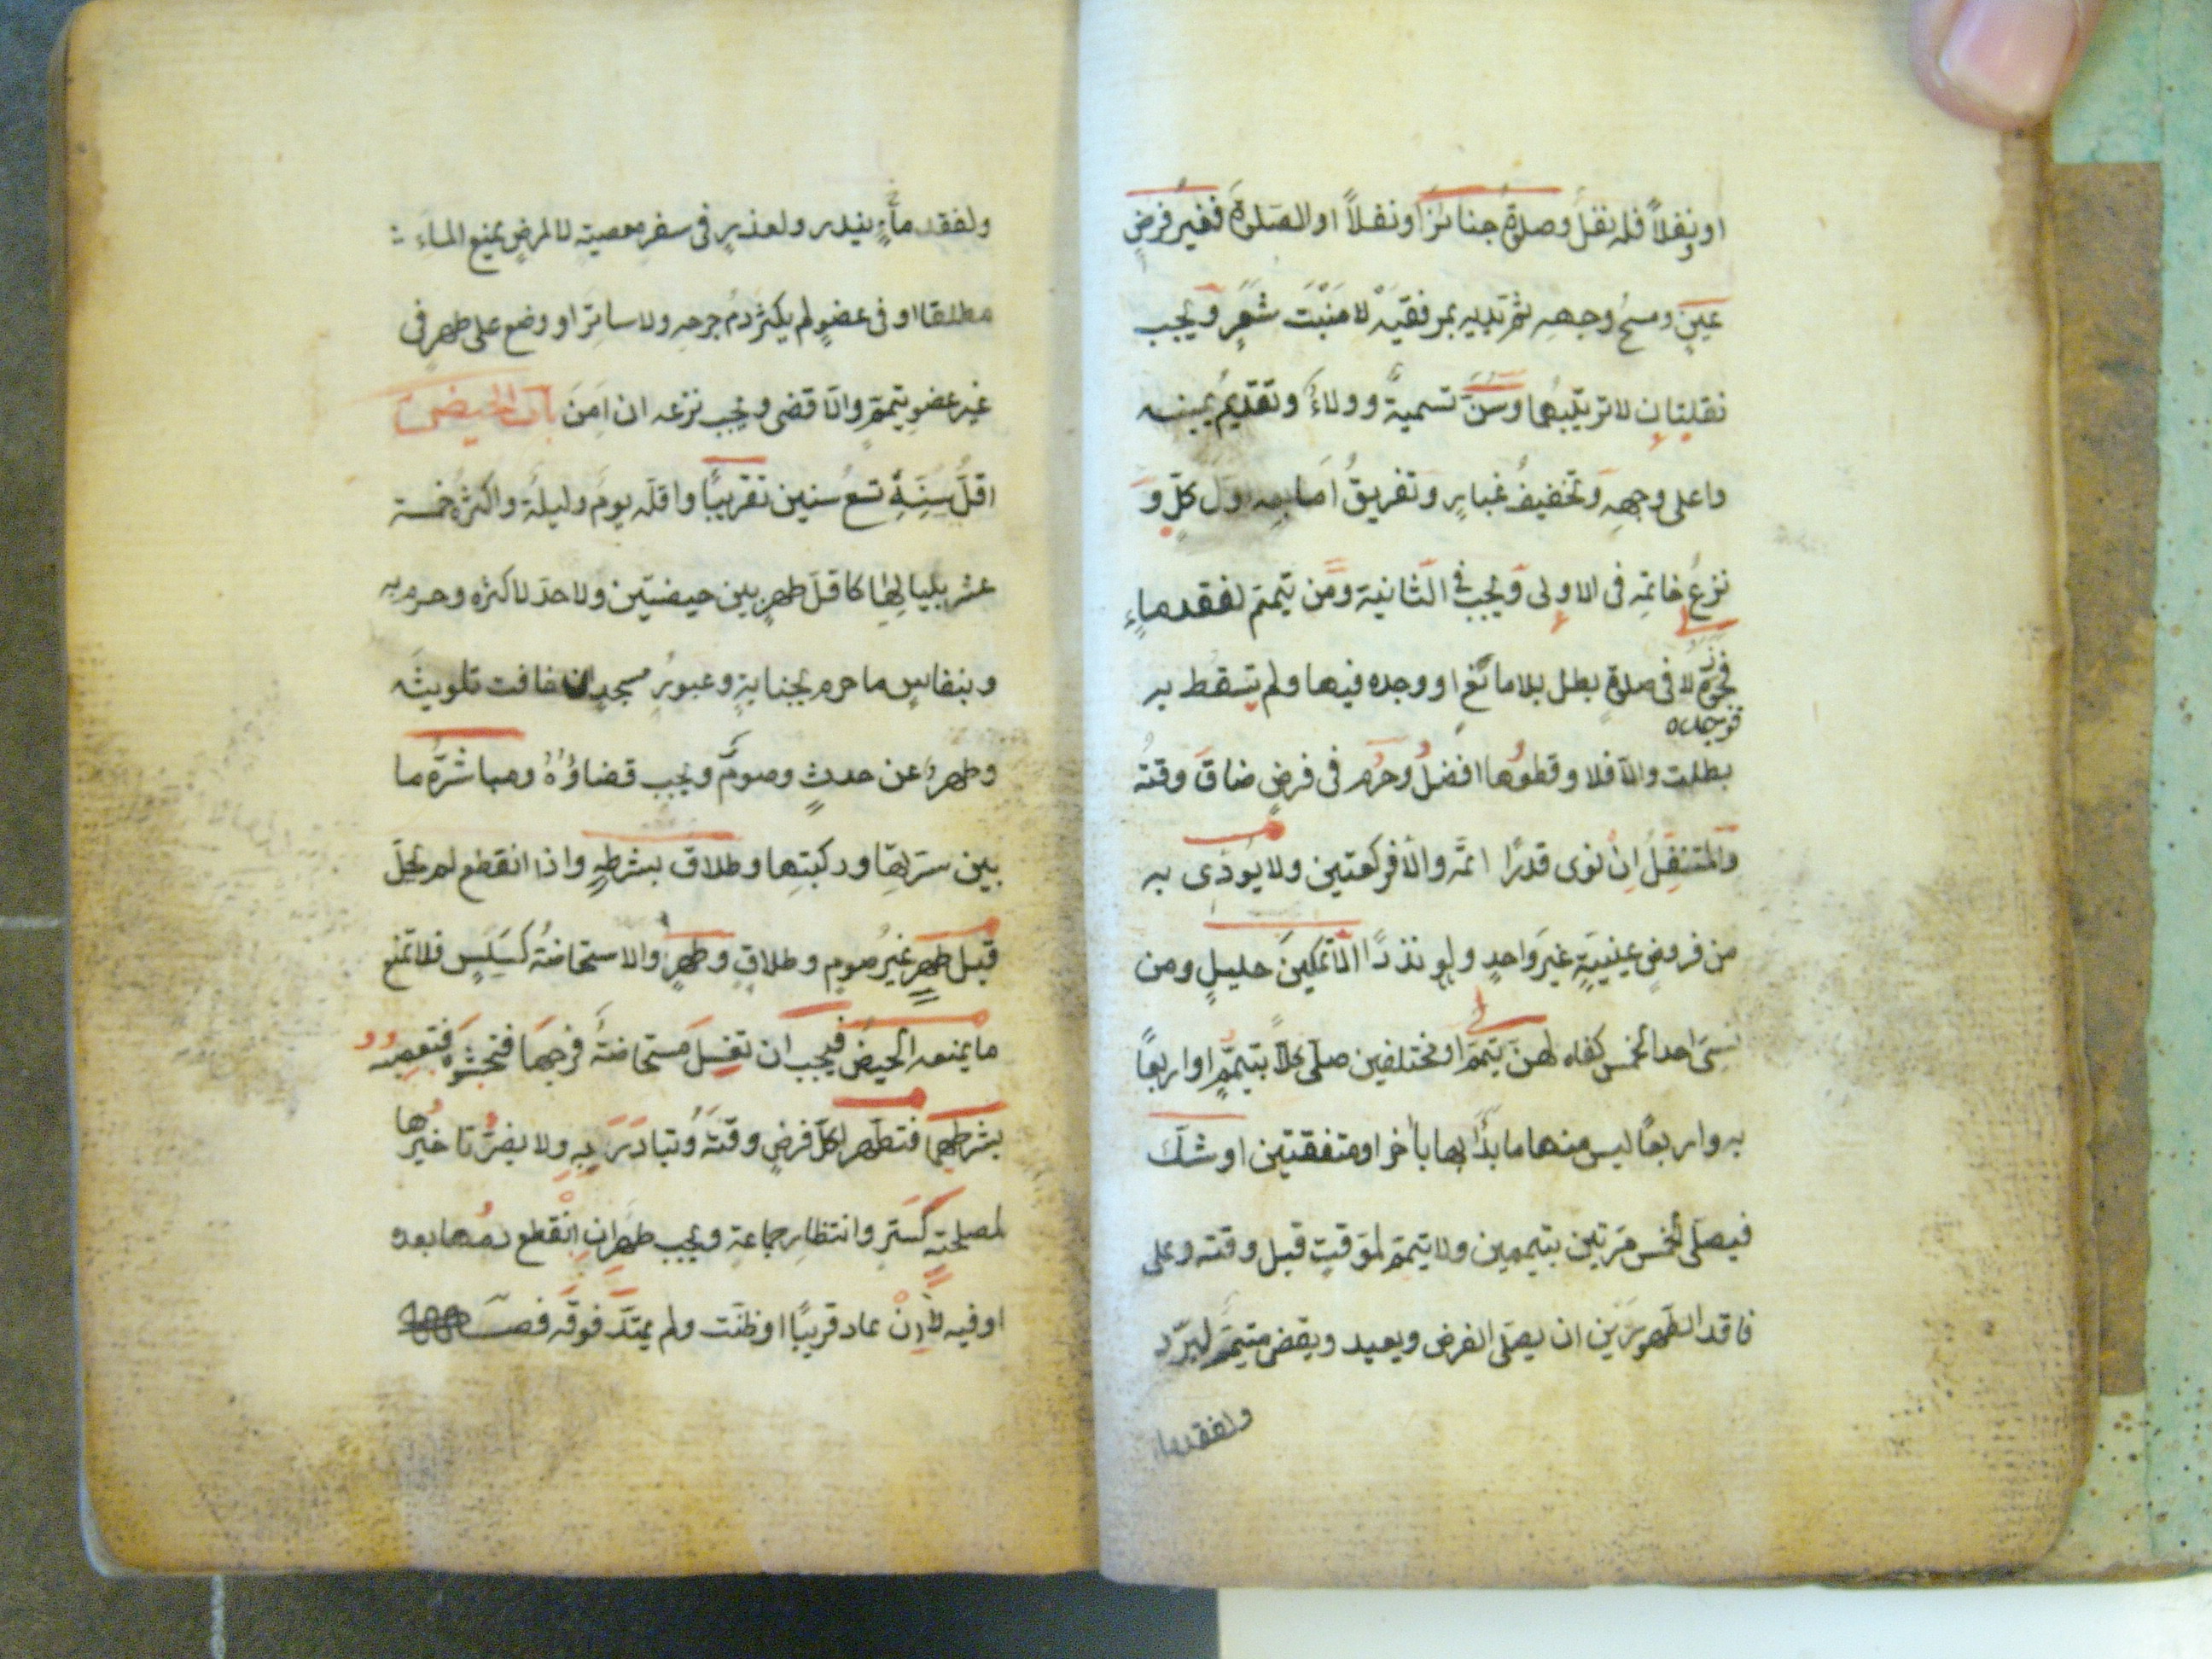 او نفلاً فله نفل وصلوة جنائز او نفلاً او الصلوة فغير فرض
عين ومسح وجهه ثم يديه بمرفقيه لا منبت شعر ويجب
نقلتان لا ترتيبهما وسن تسمية وولاء وتقديم يمينه
واعلى وجهه وتخفيف غبار وتفريق اصابعه اول كل و
نزع خاتمه فى الاولى ويجب فى الثانية ومن تيمم لفقد ماء
فجوزه لا فى صلوة بطل بلا مانع او وجده فيها ولم تسقط به
فوجده
بطلت والا فلا وقطعها افضل وحرم فى فرض ضاق وقته
والمتنفل ان نوى قدرًا اتمه والا فركعتين ولا يؤدى به
من فروض عينية غير واحد ولو نذرًا الا تمكين حليل ومن
نسى احد الخمس كفاه لهن تيمم او مختلفين صلى كلاً بتيمم او اربعاً
به واربعًا ليس منها ما بدأ بها باخر او متفقتين او شك
فيصلى الخمس مرتين بتيممين ولا يتيمم لموقت قبل وقته وعلى
فاقد الطهورين ان يصلى الفرض ويعيد ويقضى متيمم لبرد
ولفقد ماء
ولفقد ماء يندر ولعذر فى سفر معصية لا لمرض يمنع الماء
مطلقا او فى عضو لم يكثر دم جرحه ولا ساتر او وضع على طهر فى
غير عضو تيمم والا قضى ويجب نزعه ان امن باب الحيض
اقل سنه تسع سنين تقريبًا واقله يوم وليلة واكثره خمسة
عشر بلياليها كاقل طهر بين حيضتين ولا حد لاكثره وحرم به
وبنفاس ما حرم بجنابة وعبور مسجد ان خافت تلويثه
وطهر عن حدث وصوم ويجب قضاؤه ومباشرة ما
بين سرتها وركبتها وطلاق بشرطه واذا انقطع لم يحل
قبل طهر غير صوم وطلاق وطهر والاستحاضة كسلس فلا تمنع
ما يمنعه الحيض فيجب ان تغسل مستحاضة فرجها فتحشوه فتعصبه
بشرطهما فتطهر لكل فرض وقته وتبادر به ولا يضر تاخيرها
لمصلحة كستر وانتظار جماعة ويجب طهر ان انقطع دمها بعده
او فيه لا ان عاد قريبًا او ظنت ولم يمتد فوقه